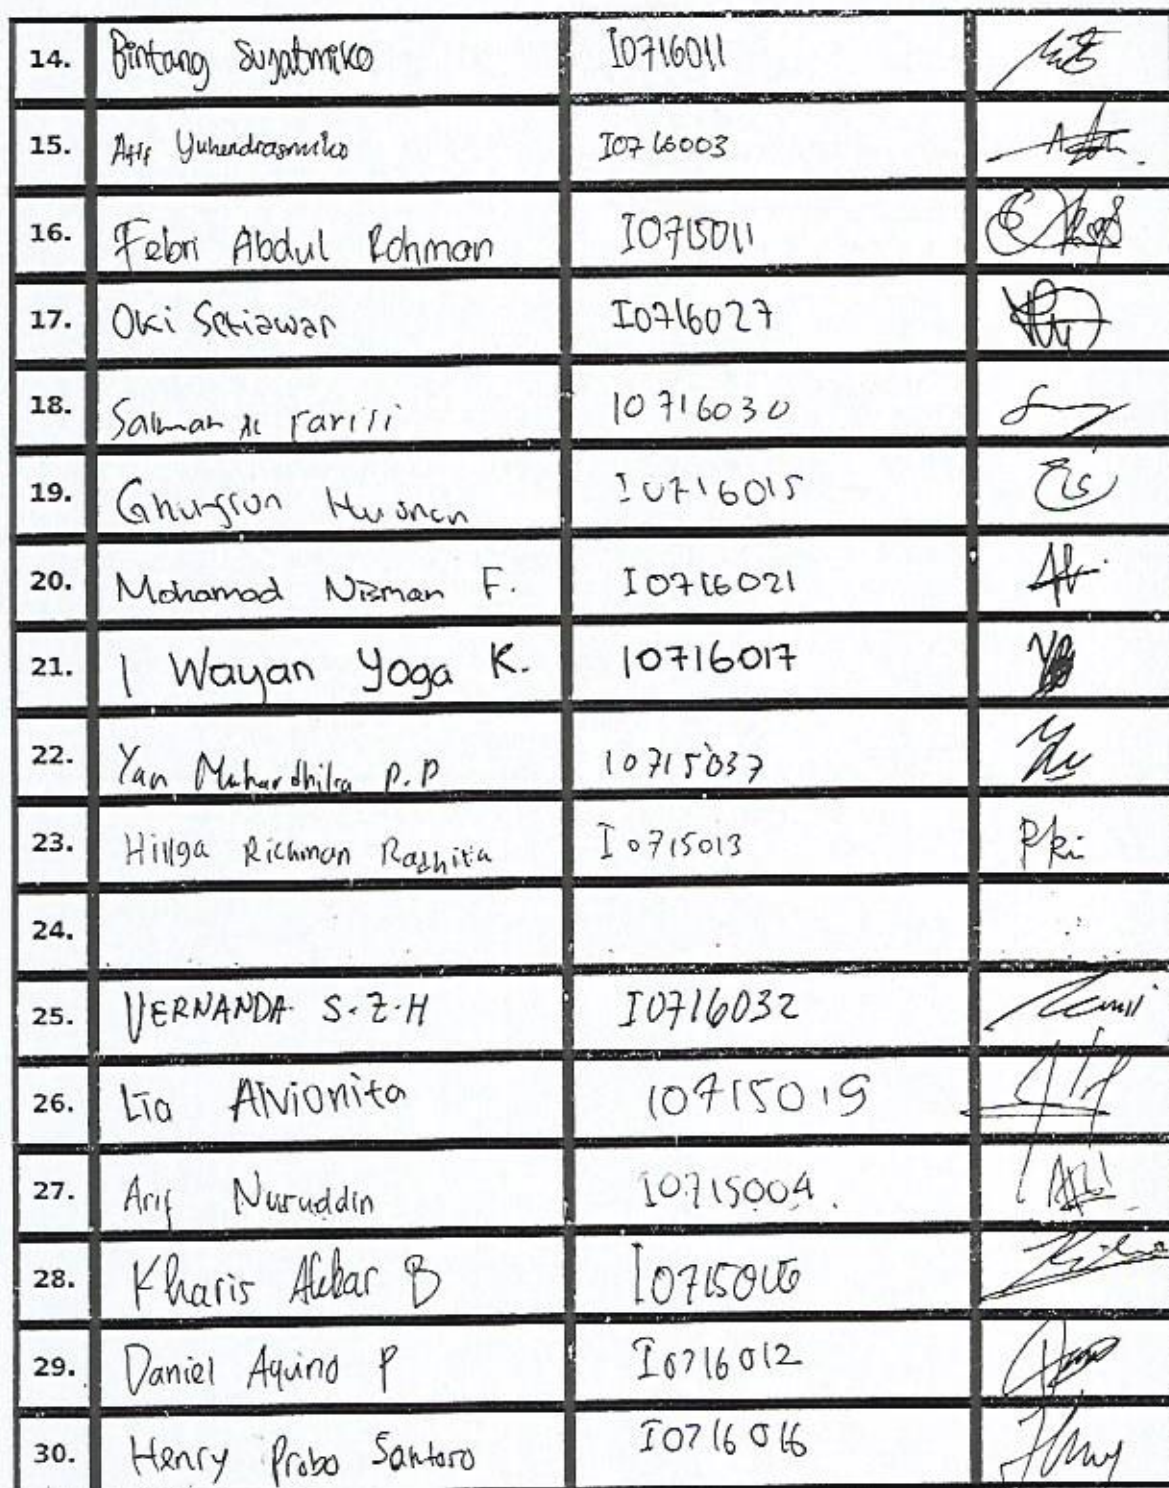 14. Bintang Sujatmiko I0716011
15. Afif Yuhendrasmiko I0716003
16. Febri Abdul Rohman I0715011
17. Oki Setiawan I0716027
18. Salman Al Farisi I0716030
19. Ghufron I0716015
20. Mohamad Nizman F. I0716021
21. I Wayan Yoga K. I0716017
22. Yan Mahardhika P.P I0715037
23. Hillga Richman Radhita I0715013
24.
25. VERNANDA S.Z.H I0716032
26. Lia Alvionita I0715019
27. Arif Nuruddin I0715004.
28. Kharis Akbar B
29. Daniel Aquino P I0716012
30. Henry Probo Santoso I0716016